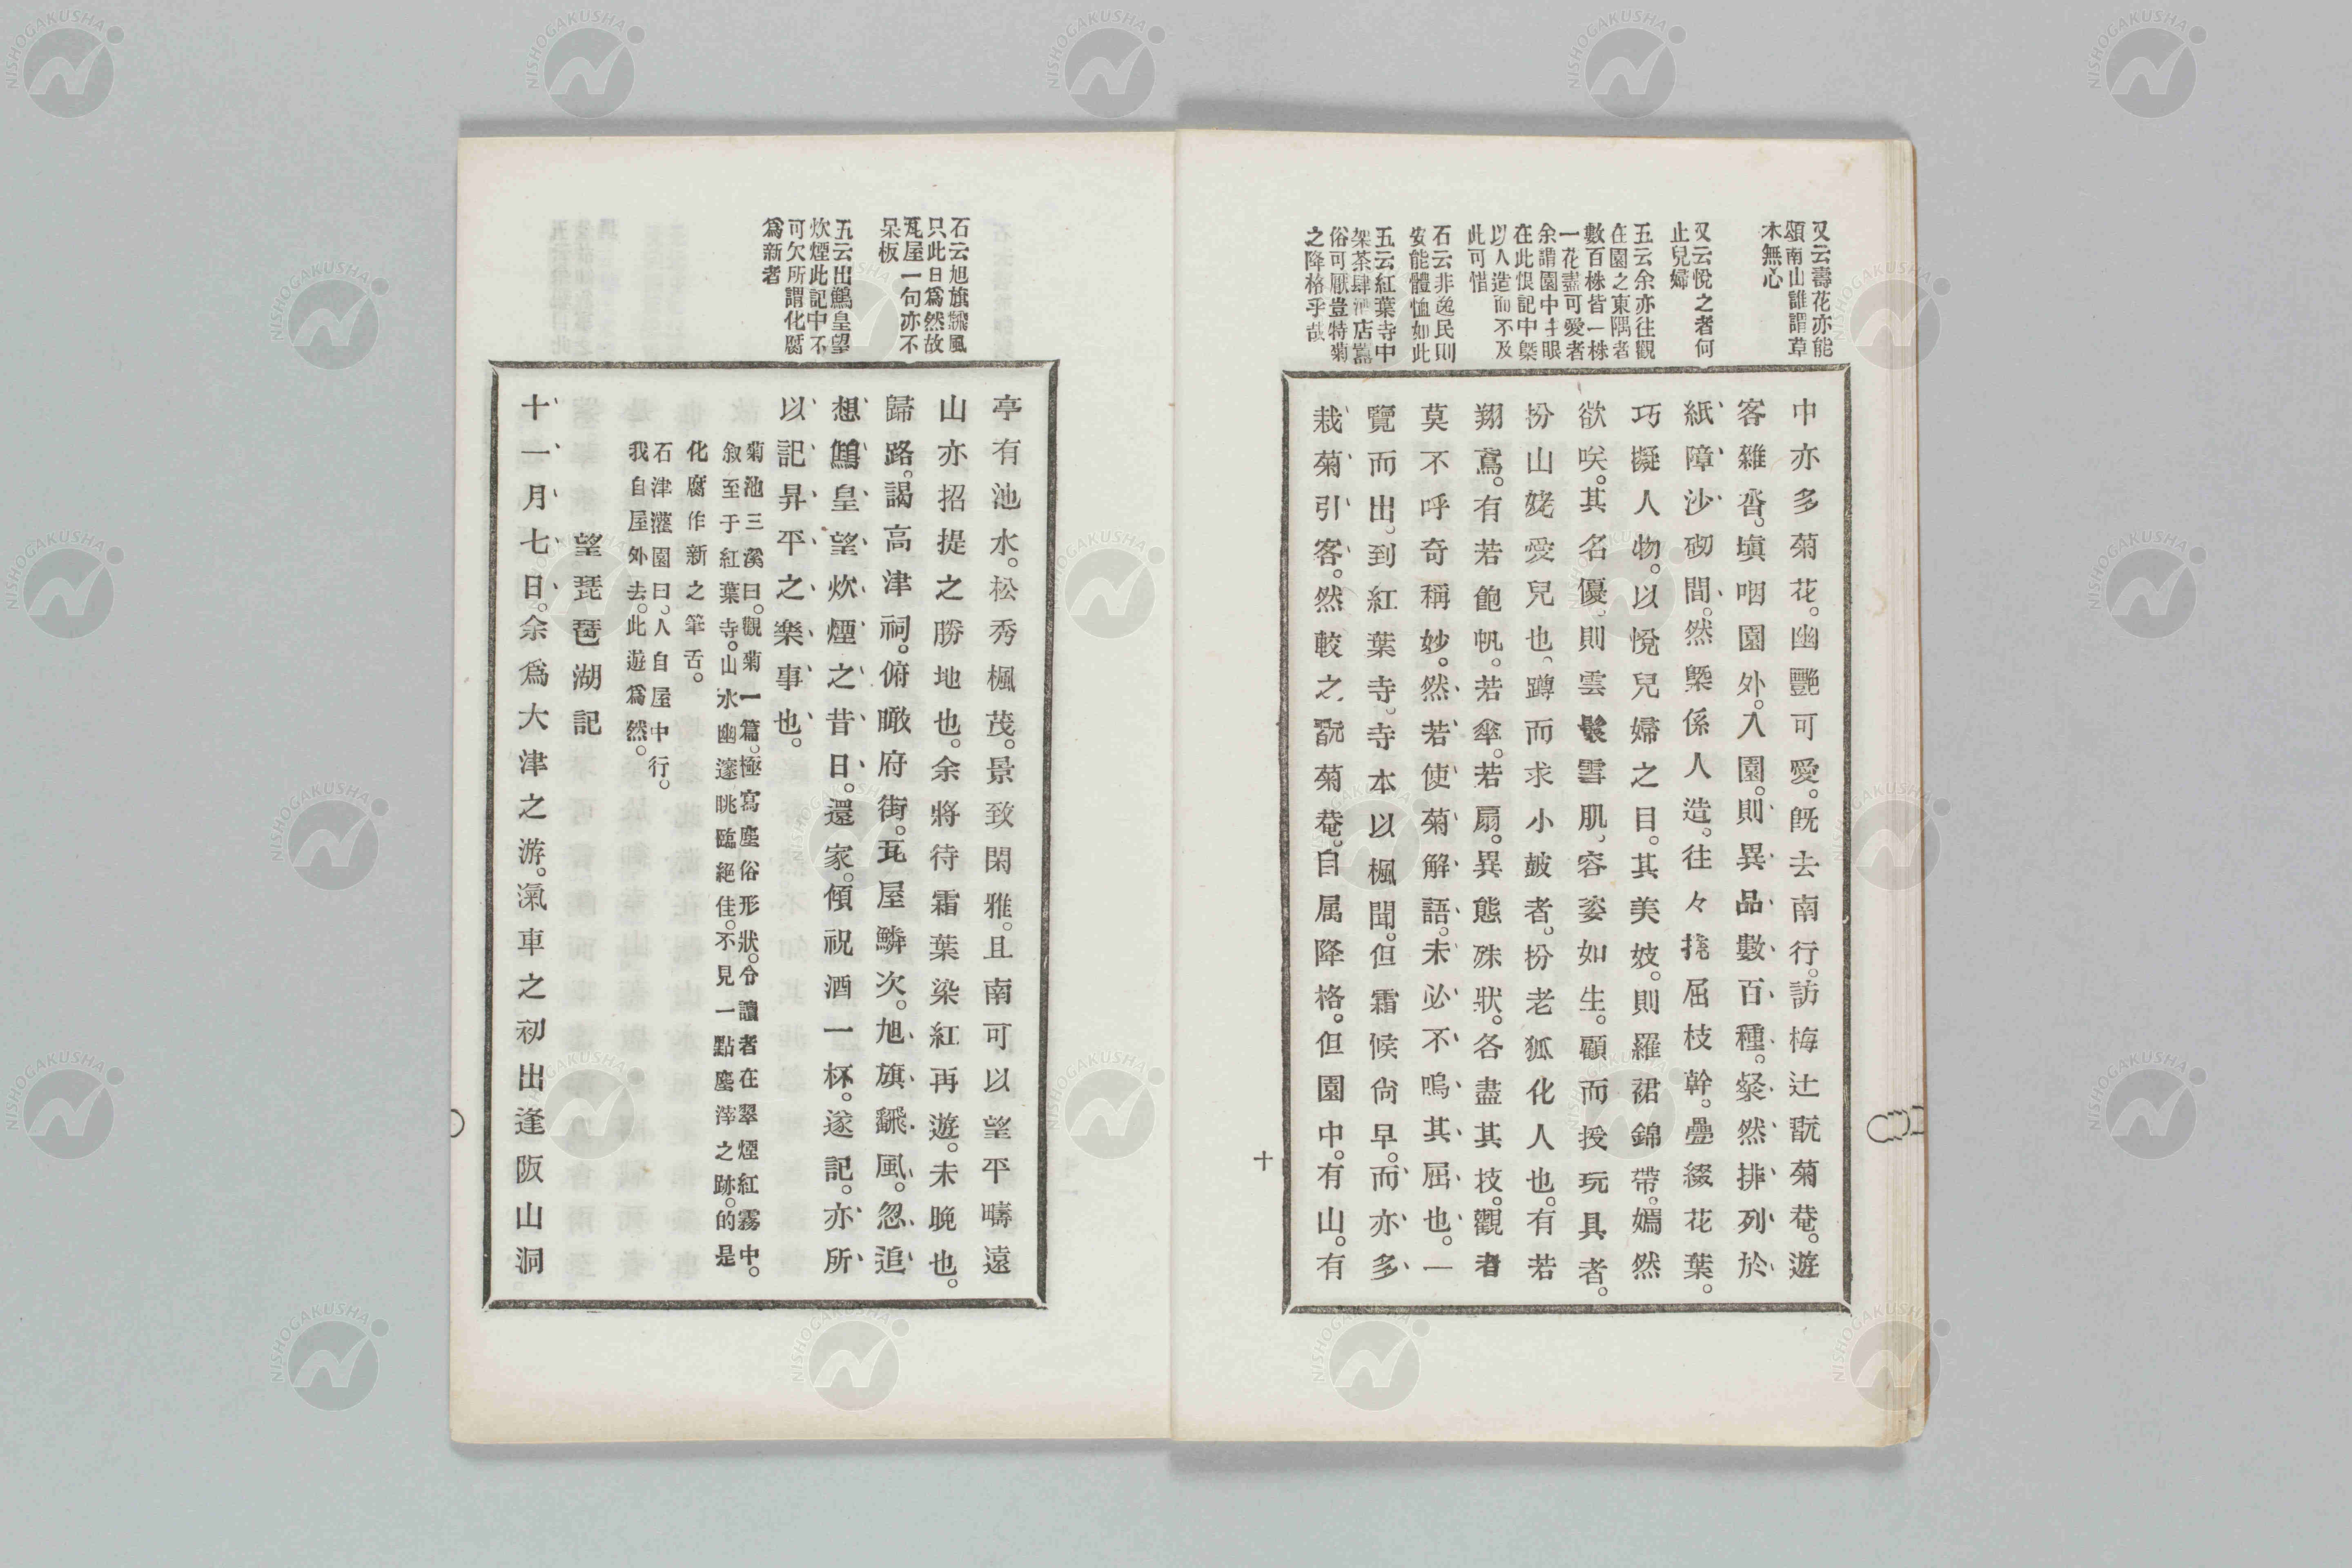 又云壽花亦能
頌南山誰謂草
木無心
又云悅之者何
止兒婦
五云余亦往觀
在園之東隅者
數百株皆一株
一花盡可愛者
余謂園中主眼
在此恨記中槩
以人造而不及
此可惜
石云非逸民則
安能體恤如此
五云紅葉寺中
架茶肆酒店囂
俗可厭豈特菊
之降格乎哉
中亦多菊花。幽艷可愛。既去南行。訪梅辻翫菊菴。遊
客雜沓。塡咽園外。入園。則異品數百種。粲然排列於
紙障沙砌間。然槩係人造。往々撓屈枝幹。疊綴花葉。
巧擬人物。以悅兒婦之目。其美妓。則羅裙錦帶。嫣然
欲咲。其名優、則雲鬟雪肌、容姿如生。顧而授玩具者。
扮山姥愛兒也、蹲而求小皷者。扮老狐化人也。有若
翔鳶。有若飽帆。若傘。若扇。異態殊狀。各盡其技。觀者
莫不呼奇稱妙。然若使菊解語。未必不鳴其屈也。一
覽而出、到紅葉寺。寺本以楓聞。但霜候尙早。而亦多
栽菊引客。然較之翫菊菴。自属降格。但園中。有山。有
十
石云旭旗飜風
只此日爲然故
瓦屋一句亦不
呆板
五云出鷦皇望
炊煙此記中不
可欠所謂化腐
爲新者
亭有池水。松秀楓茂。景致閑雅。且南可以望平疇遠
山亦招提之勝地也。余將待霜葉染紅再遊。未晚也。
歸路。謁高津祠。俯瞰府街。瓦屋鱗次。旭旗飜風。忽追
想鷦皇望炊煙之昔日。還家。傾祝酒一杯。遂記。亦所
以記昇平之樂事也。
菊池三溪曰。觀菊一篇、極寫塵俗形狀。令讀者在翠煙紅霧中。
叙至于紅葉寺。山水幽邃眺臨絕佳。不見一點塵滓之跡。的是
化腐作新之筆舌。
石津灌園曰、人自屋中行。
我自屋外去。此遊爲然。
望琵琶湖記
十一月七日。余爲大津之游。滊車之初出逢阪山洞